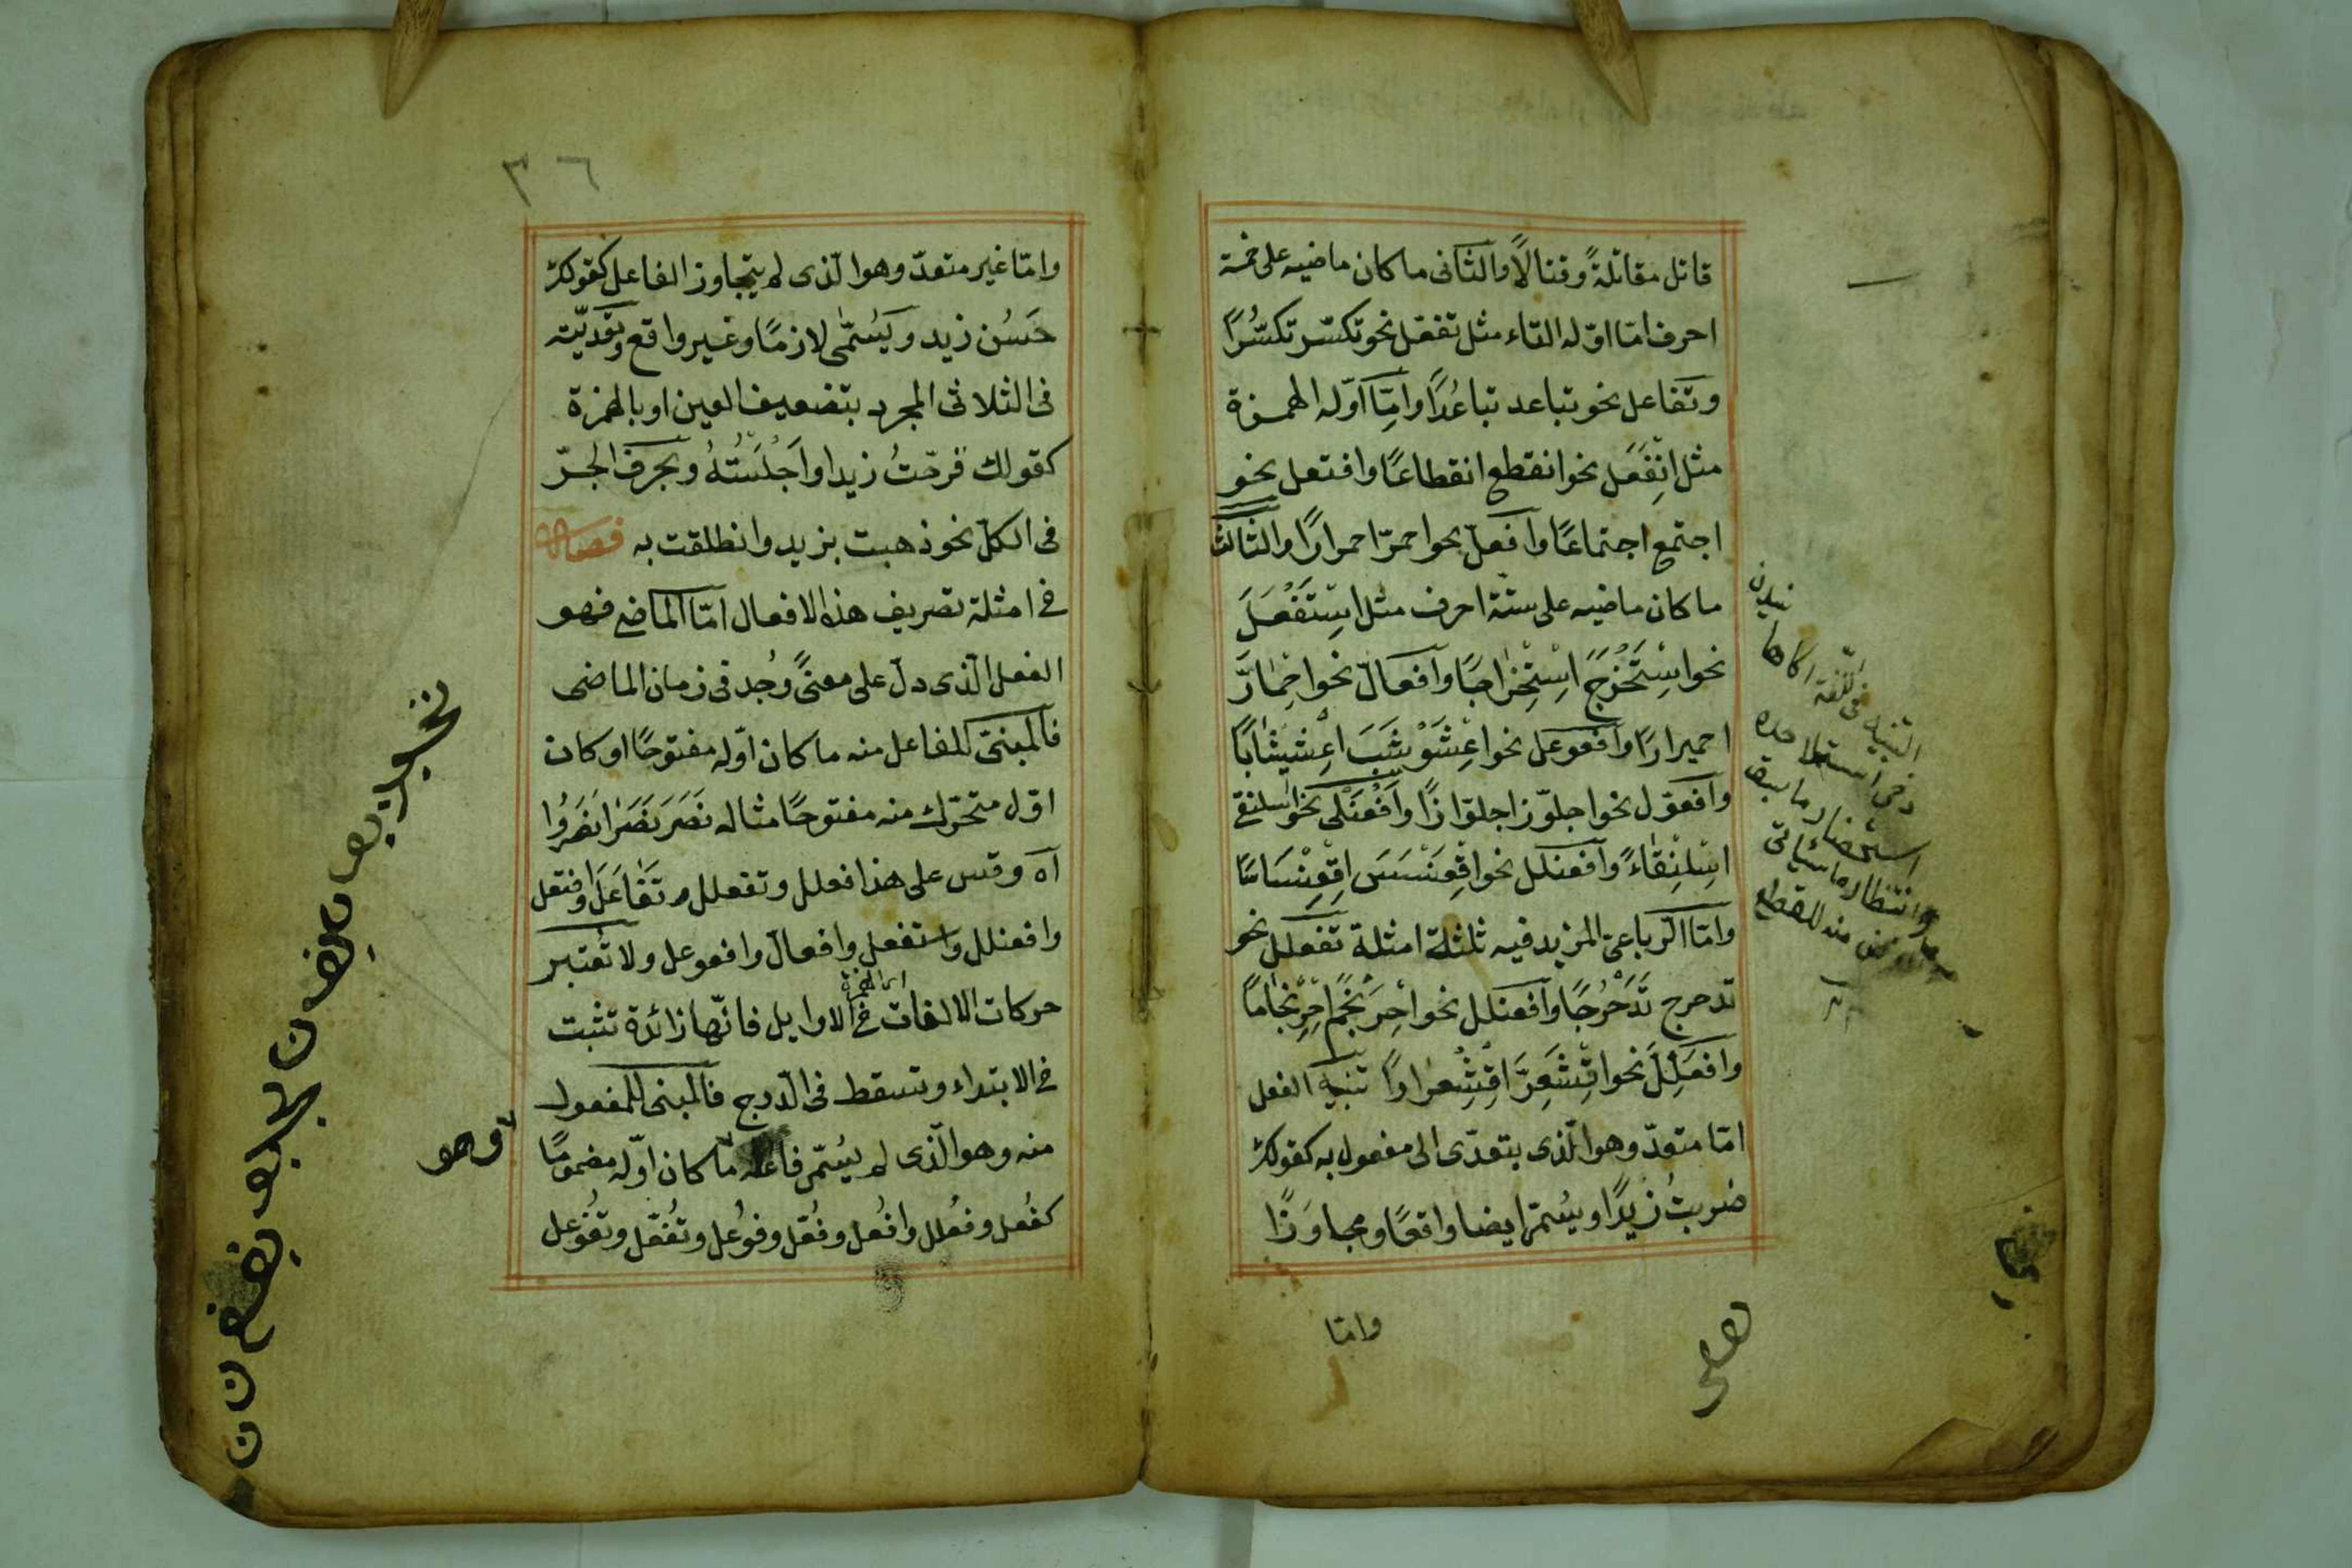 قاتل مقاتلةً وقتالًا والثانى ما كان ماضيه على خمسة
احرف امّا اوّله التاء مثل تفعّل نحو تكسّر تكسُّرًا
وتفاعل نحو تباعد تباعُدًا وامّا اوّله الهمزة
مثل اِنْفَعَل نحو انقطع انقطاعًا وافتعل نحو
اجتمع اجتماعًا وافعلّ نحو احمرّ احمرارًا والثالث
ما كان ماضيه على ستّة احرف مثل اِسْتَفْعَلَ
نحو اِسْتَخْرَجَ اِسْتِخْراجًا وافعالّ نحو احْمٰارَّ
احميرارًا وافعوعل نحو اِعْشَوْشَبَ اِعْشيشٰابًا
وافعوّل نحو اجلوّز اجلوّازًا وَاَفْعَنْلٰى نحو اسلنقى
اِسْلِنْقٰاءً وافعنلل نحو اِقْعَنْسَسَ اِقْعِنْسَاسًا
وامّا الرباعىّ المزيد فيه ثلثلة امثلة تفعلل نحو
تدحرج تَدَحْرُجًا وافعنلل نحو احْرَنْجَمَ اِحْرِنْجٰامًا
وافعَلَلَّ نحو اقْشَعَرَّ اِقْشِعْرارًا تنبيه الفعل
امّا متعدّ وهو الّذى يتعدّى الى مفعول به كقولك
ضربتُ زيدًا ويسُمّى ايضا واقعًا ومجاوَزًا
وامّا
التنبيه فى اللّغة
٣٦
وامّا غير متعدّ وهو الّذى لم يتجاوز الفاعل كقولك
حَسُن زيد ويَسُمّٰى لازمًا وغير واقع وتَعْديّته
فى الثلاثى المجرد بتضعيف العين او بالهمزة
كقولك فرحّتُ زيدا واَجْلَسْتُهُ وبحرف الجرّ
فى الكلّ نحو ذهبت بزيد وانطلقت به فصل
فى امثلة تصريف هذه الافعال امّا الماضى فهو
الفعل الّذى دلّ على معنًى وُجد فى زمان الماضى
فالمبنىّ للفاعل منه ما كان اوّله مفتوحًا او كان
اوّل متحرّك منه مفتوحًا مثاله نَصَرَ نَصَرٰا نصَرُوا
آه وقس على هذا فعلل وتفعلل وتَفٰاعَلَ وافتعل
وافعنلل واستفعل وافعالّ وافعوعل ولا تُعْتبر
حركات الالفات فى الاوايل فانّها زائدة تثبت
فى الابتداء وتسقط فى الدّرج فالمبنى للمفعول
منه وهو الّذى لم يُسَمّ فاعله ما كان اوّله مضمومًا
كفُعل وفُعلل وافُعل وفُعّل وفوُعل وتُفُعّل وتُفوُعل
وهو